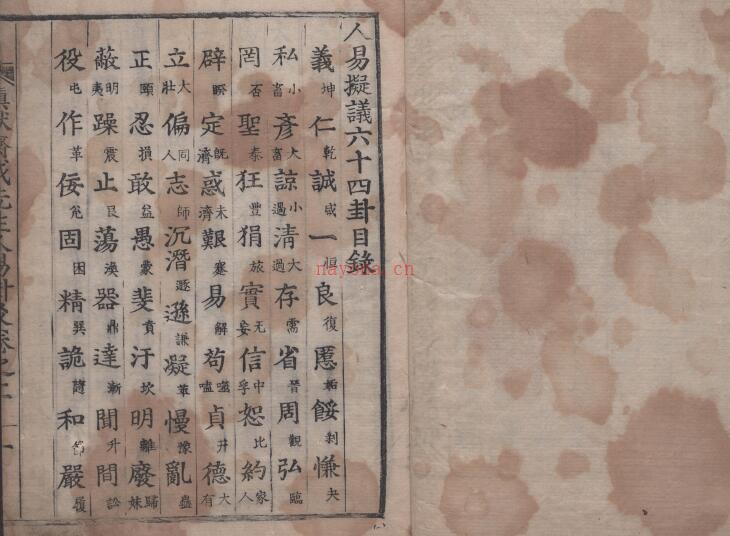 人易擬議六十四卦目錄
義坤 仁乾 誠咸 一恒 良復 慝姤 餒剝 慊夬
私小畜 彥大畜 諒小過 清大過 存需 省晉 周觀 弘臨
罔否 聖泰 狂豐 狷旅 實无妄 信中孚 恕比 約家人
辟睽 定既濟 惑未濟 艱蹇 易解 苟噬嗑 貞井 德大有
立大壯 偏同人 志師 沉潛遯 遜謙 凝萃 慢豫 亂蠱
正頤 忍損 敢益 愚蒙 斐賁 汙坎 明離 廢歸妹
蔽明夷 躁震 止艮 蕩渙 器鼎 達漸 聞升 間訟
役屯 作革 佞兌 固困 精巽 詭 和節 嚴履